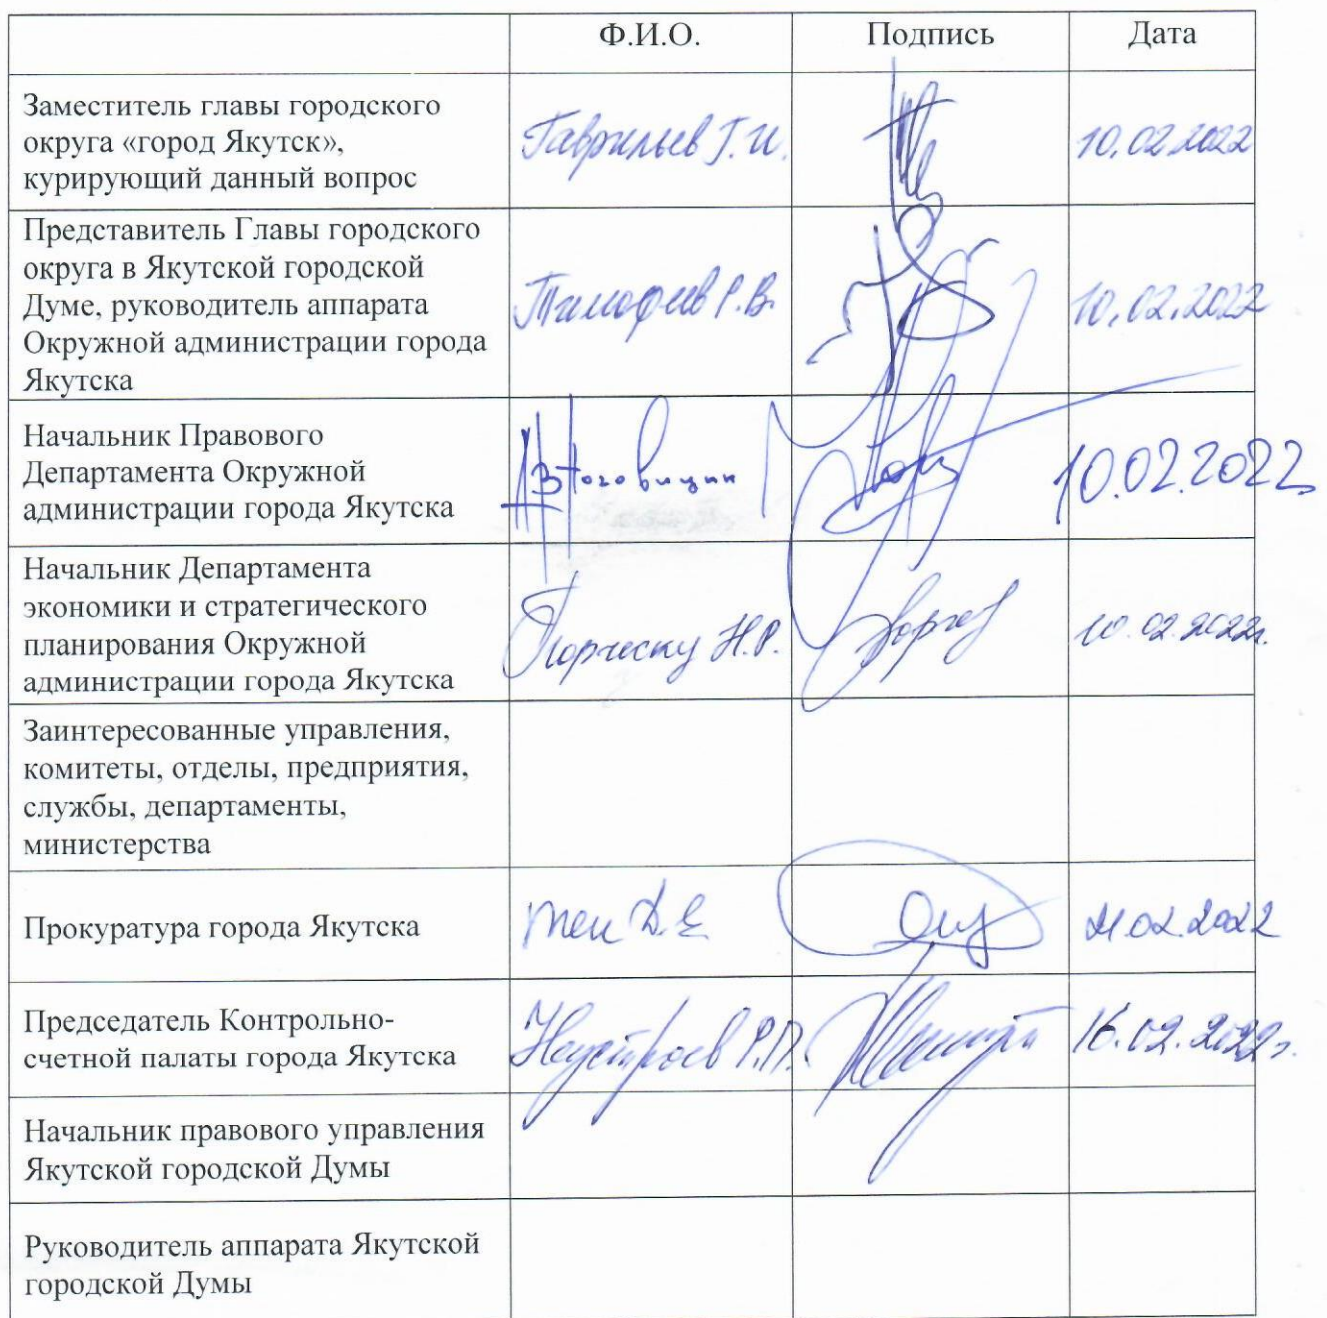 Ф.И.О. Подпись Дата
Заместитель главы городского
округа «город Якутск»,
курирующий данный вопрос
Гаврильев Г.И. 10.02.2022
Представитель Главы городского
округа в Якутской городской
Думе, руководитель аппарата
Окружной администрации города
Якутска
Тимофеев Р.В. 10.02.2022
Начальник Правового
Департамента Окружной
администрации города Якутска
Ноговицин 10.02.2022
Начальник Департамента
экономики и стратегического
планирования Окружной
администрации города Якутска
Порческу Н.Р. 10.02.2022г.
Заинтересованные управления,
комитеты, отделы, предприятия,
службы, департаменты,
министерства
Прокуратура города Якутска
Тен Д.Е 21.02.2022
Председатель Контрольно-
счетной палаты города Якутска
Неустроев Р.П. 16.02.2022г.
Начальник правового управления
Якутской городской Думы
Руководитель аппарата Якутской
городской Думы